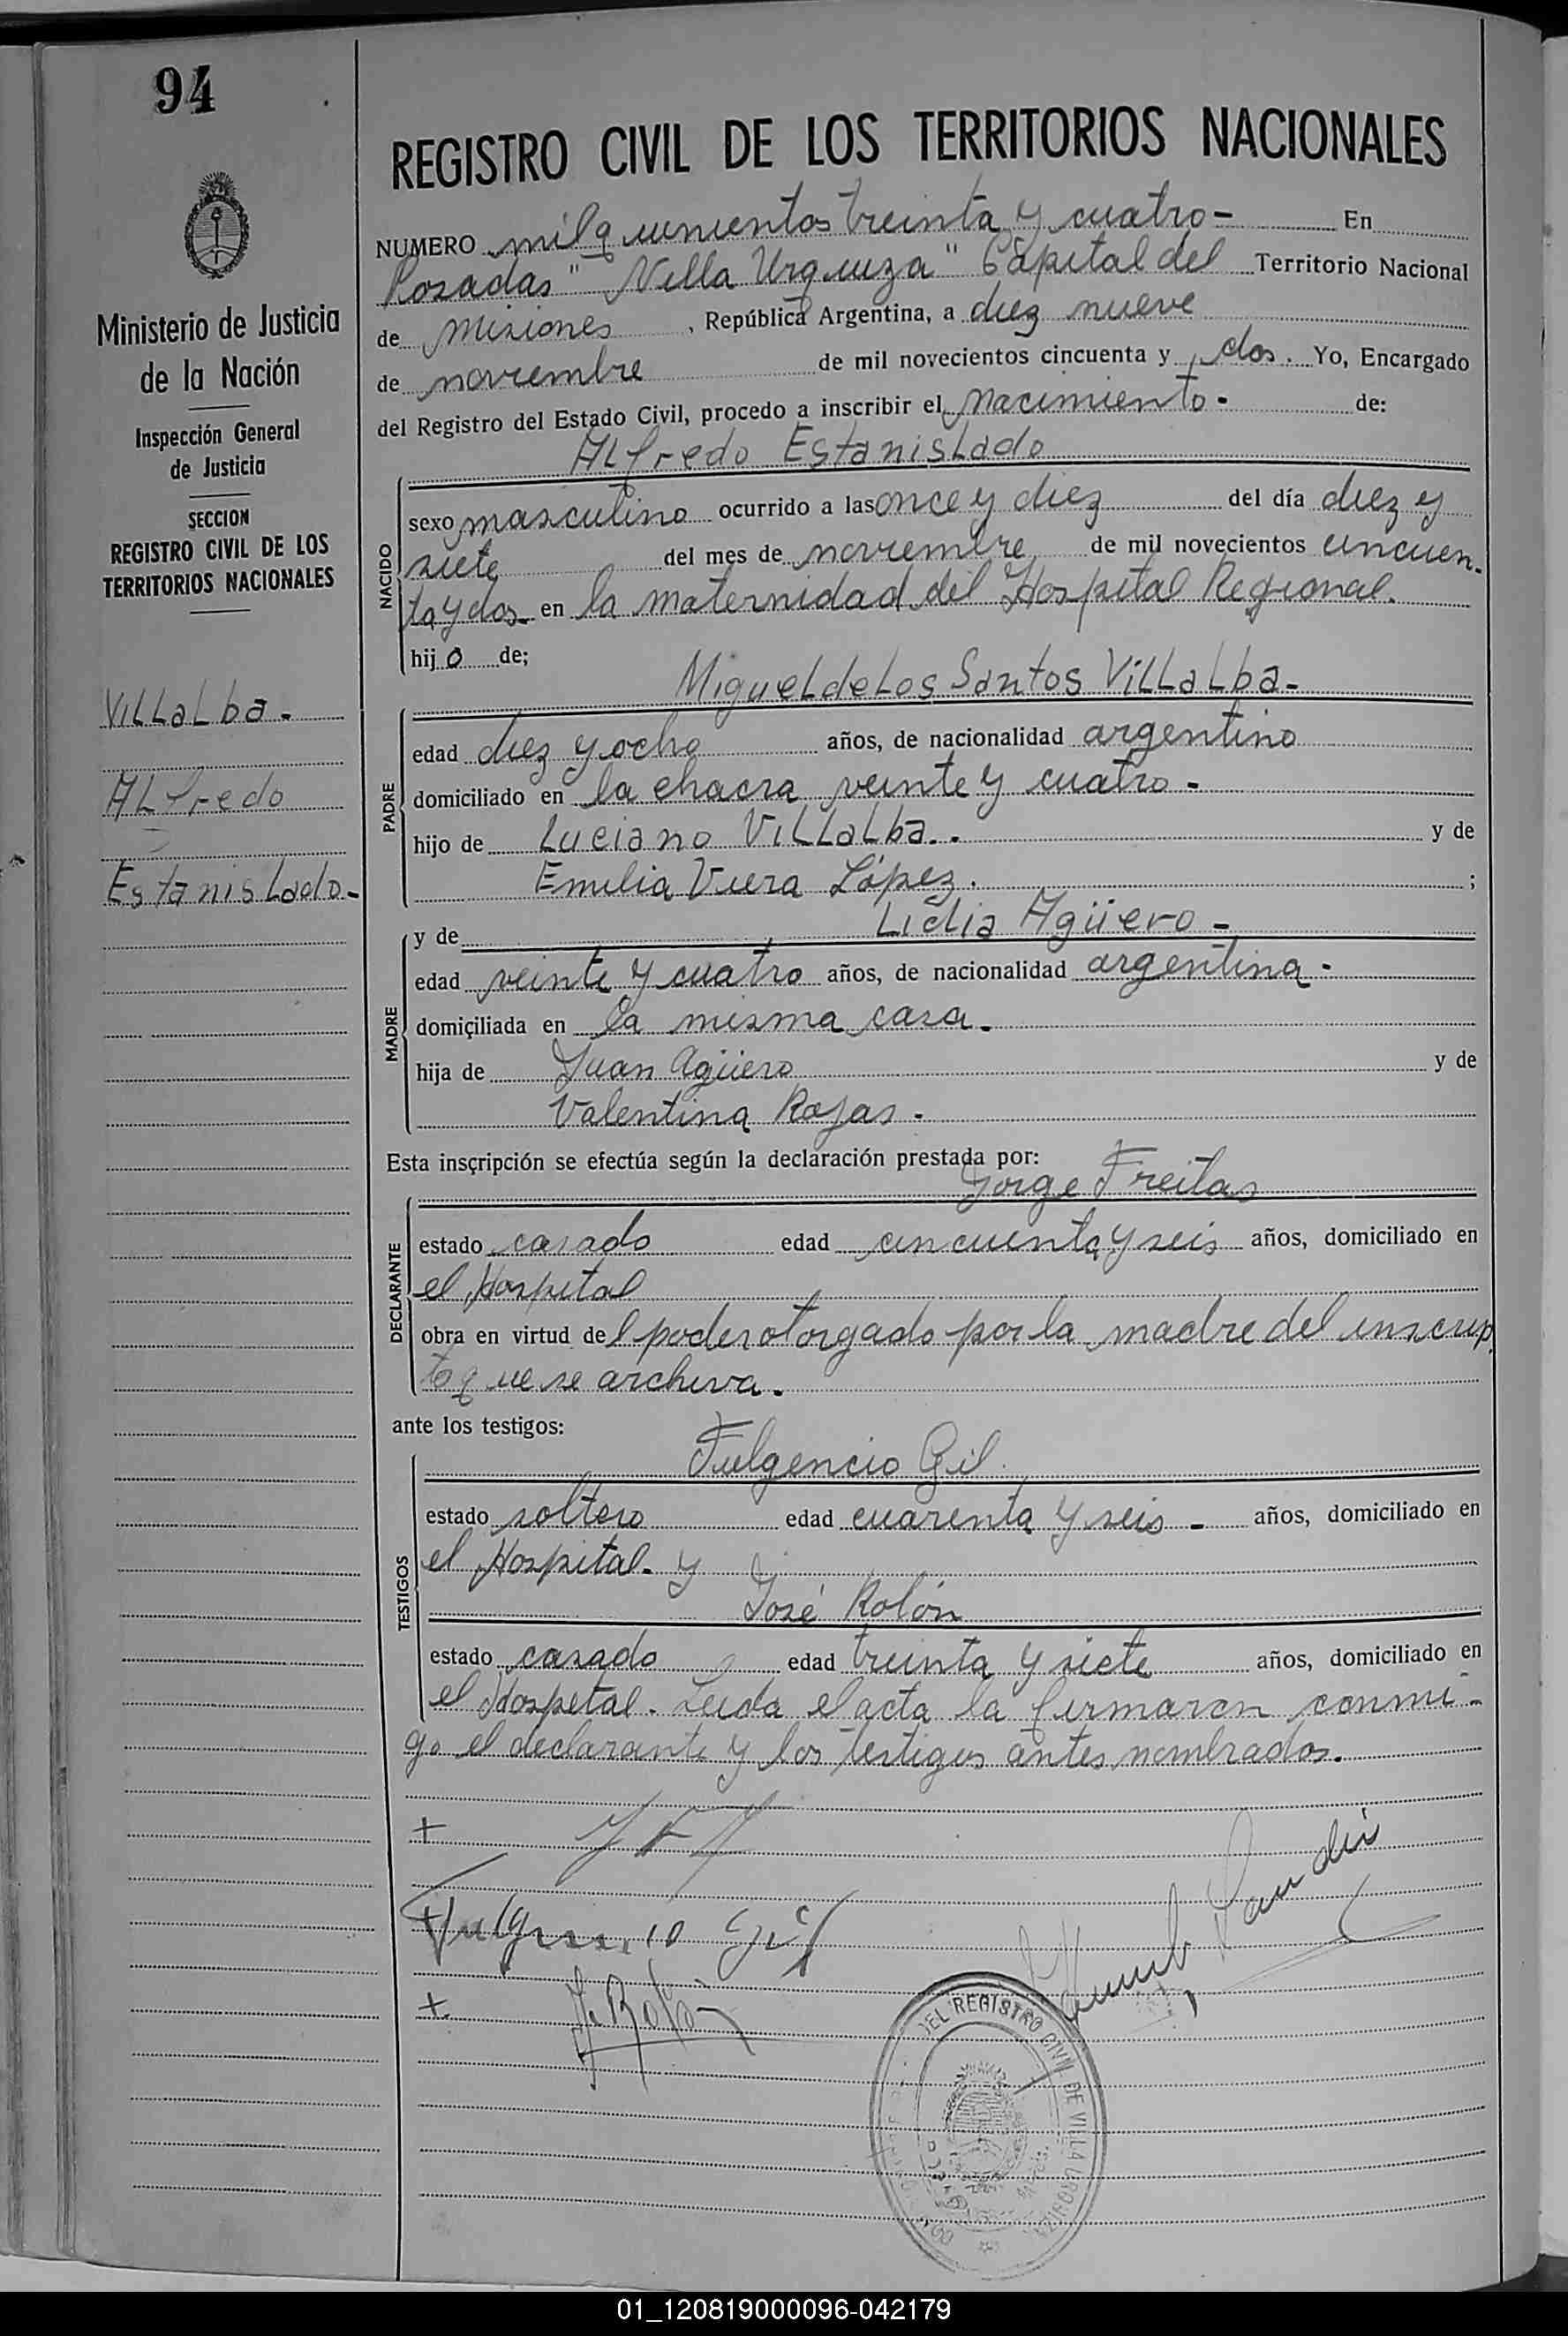 94
Ministerio de Justicia
de la Nación
Inspección General
de Justicia
SECCION
REGISTRO CIVIL DE LOS
TERRITORIOS NACIONALES
Villalba.-
Alfredo
Estanislado.-
REGISTRO CIVIL DE LOS TERRITORIOS NACIONALES
NUMERO mil quinientos treinta y cuatro- En
Posadas "Villa Urquiza" Capital del Territorio Nacional
de Misiones, República Argentina, a diez nueve
de noviembre de mil novecientos cincuenta y dos. Yo, Encargado
del Registro del Estado Civil, procedo a inscribir el Nacimiento- de:
Alfredo Estanislado
NACIDO
sexo masculino ocurrido a las once y diez del día diez y
siete del mes de noviembre de mil novecientos cincuen-
ta y dos- en la maternidad del Hospital Regional.
hijo de;
Miguel de los Santos Villalba-
PADRE
edad diez y ocho años, de nacionalidad argentino
domiciliado en la chacra veinte y cuatro-
hijo de Luciano Villalba.- y de
Emilia Viera López. ;
y de Lidia Agüero-
MADRE
edad veinte y cuatro años, de nacionalidad argentina-
domiciliada en la misma casa-
hija de Juan Agüero y de
Valentina Rojas-
Esta inscripción se efectúa según la declaración prestada por:
Jorge Freitas
DECLARANTE
estado casado edad cincuenta y seis años, domiciliado en
el Hospital
obra en virtud del poder otorgado por la madre del inscrip
to que se archiva.
ante los testigos:
Fulgencio Gil.
TESTIGOS
estado soltero edad cuarenta y seis- años, domiciliado en
el Hospital- y
José Rolón
estado casado edad treinta y siete años, domiciliado en
el Hospital. Leida el acta la firmaron conmi-
go el declarante y los testigos antes nombrados.
+
+ Fulgencio Gil
+ J. Rolón
DEL REGISTRO CIVIL DE VILLA URQUIZA
01_120819000096-042179